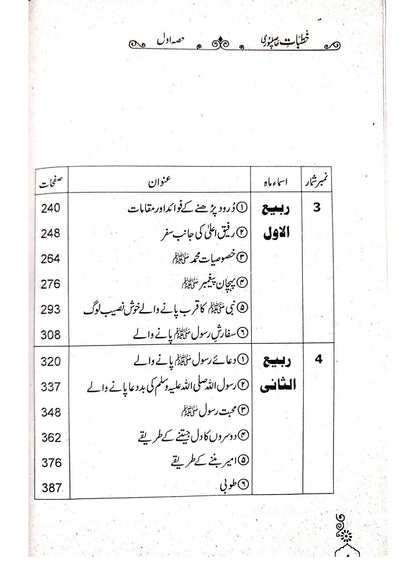 خطبات عاصمپوری حصہ اول
نمبر شمار اسماء ماہ عنوان صفحات
3 ربیع الاول ① درود پڑھنے کے فوائد اور مقامات 240
② رفیق اعلیٰ کی جانب سفر 248
③ خصوصیات محمد ﷺ 264
④ پہچان پیغمبر ﷺ 276
⑤ نبی ﷺ کا قرب پانے والے خوش نصیب لوگ 293
⑥ سفارش رسول ﷺ پانے والے 308
4 ربیع الثانی ① دعائے رسول ﷺ پانے والے 320
② رسول اللہ صلی اللہ علیہ وسلم کی بددعا پانے والے 337
③ محبت رسول ﷺ 348
④ دوسروں کا دل جیتنے کے طریقے 362
⑤ امیر بننے کے طریقے 376
⑥ طوبیٰ 387